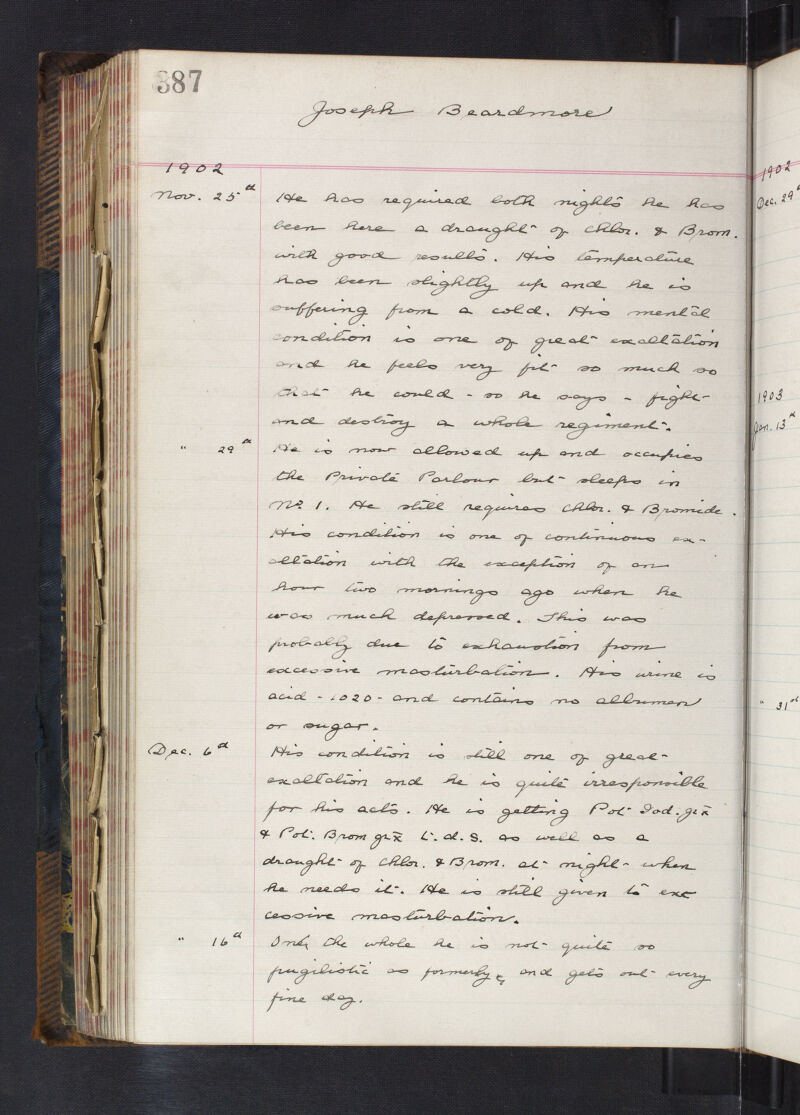 387
Joseph Beardmore
1902
Nov. 25th He has required both nights he has
been here a draught of Chlor. & Brom.
with good results. His temperature
has been slightly up and he is
suffering from a cold. His mental
condition is one of great exaltation
and he feels very fit so much so
that he could - so he says - fight
and destroy a whole regiment.
" 29th He is now allowed up and occupies
the Private Parlour but sleeps in
No. 1. He still requires Chlor. & Bromide.
His condition is one of continuous ex-
altation with the exception of an
hour two mornings ago when he
was much depressed. This was
probably due to exhaustion from
excessive masturbation. His urine is
acid - 1020 - and contains no albumen
or sugar.
Dec. 6th His condition is still one of great
exaltation and he is quite irresponsible
for his acts. He is getting Pot. Iod. gr x
& Pot. Brom gr x t.d.s. as well as a
draught of Chlor. & Brom. at night when
he needs it. He is still given to exc
cessive masturbation.
" 16th On the whole he is not quite so
pugilistic as formerly, and gets out every
fine day.
1902
Dec. 29th
1903
Jan. 13th
" 31st